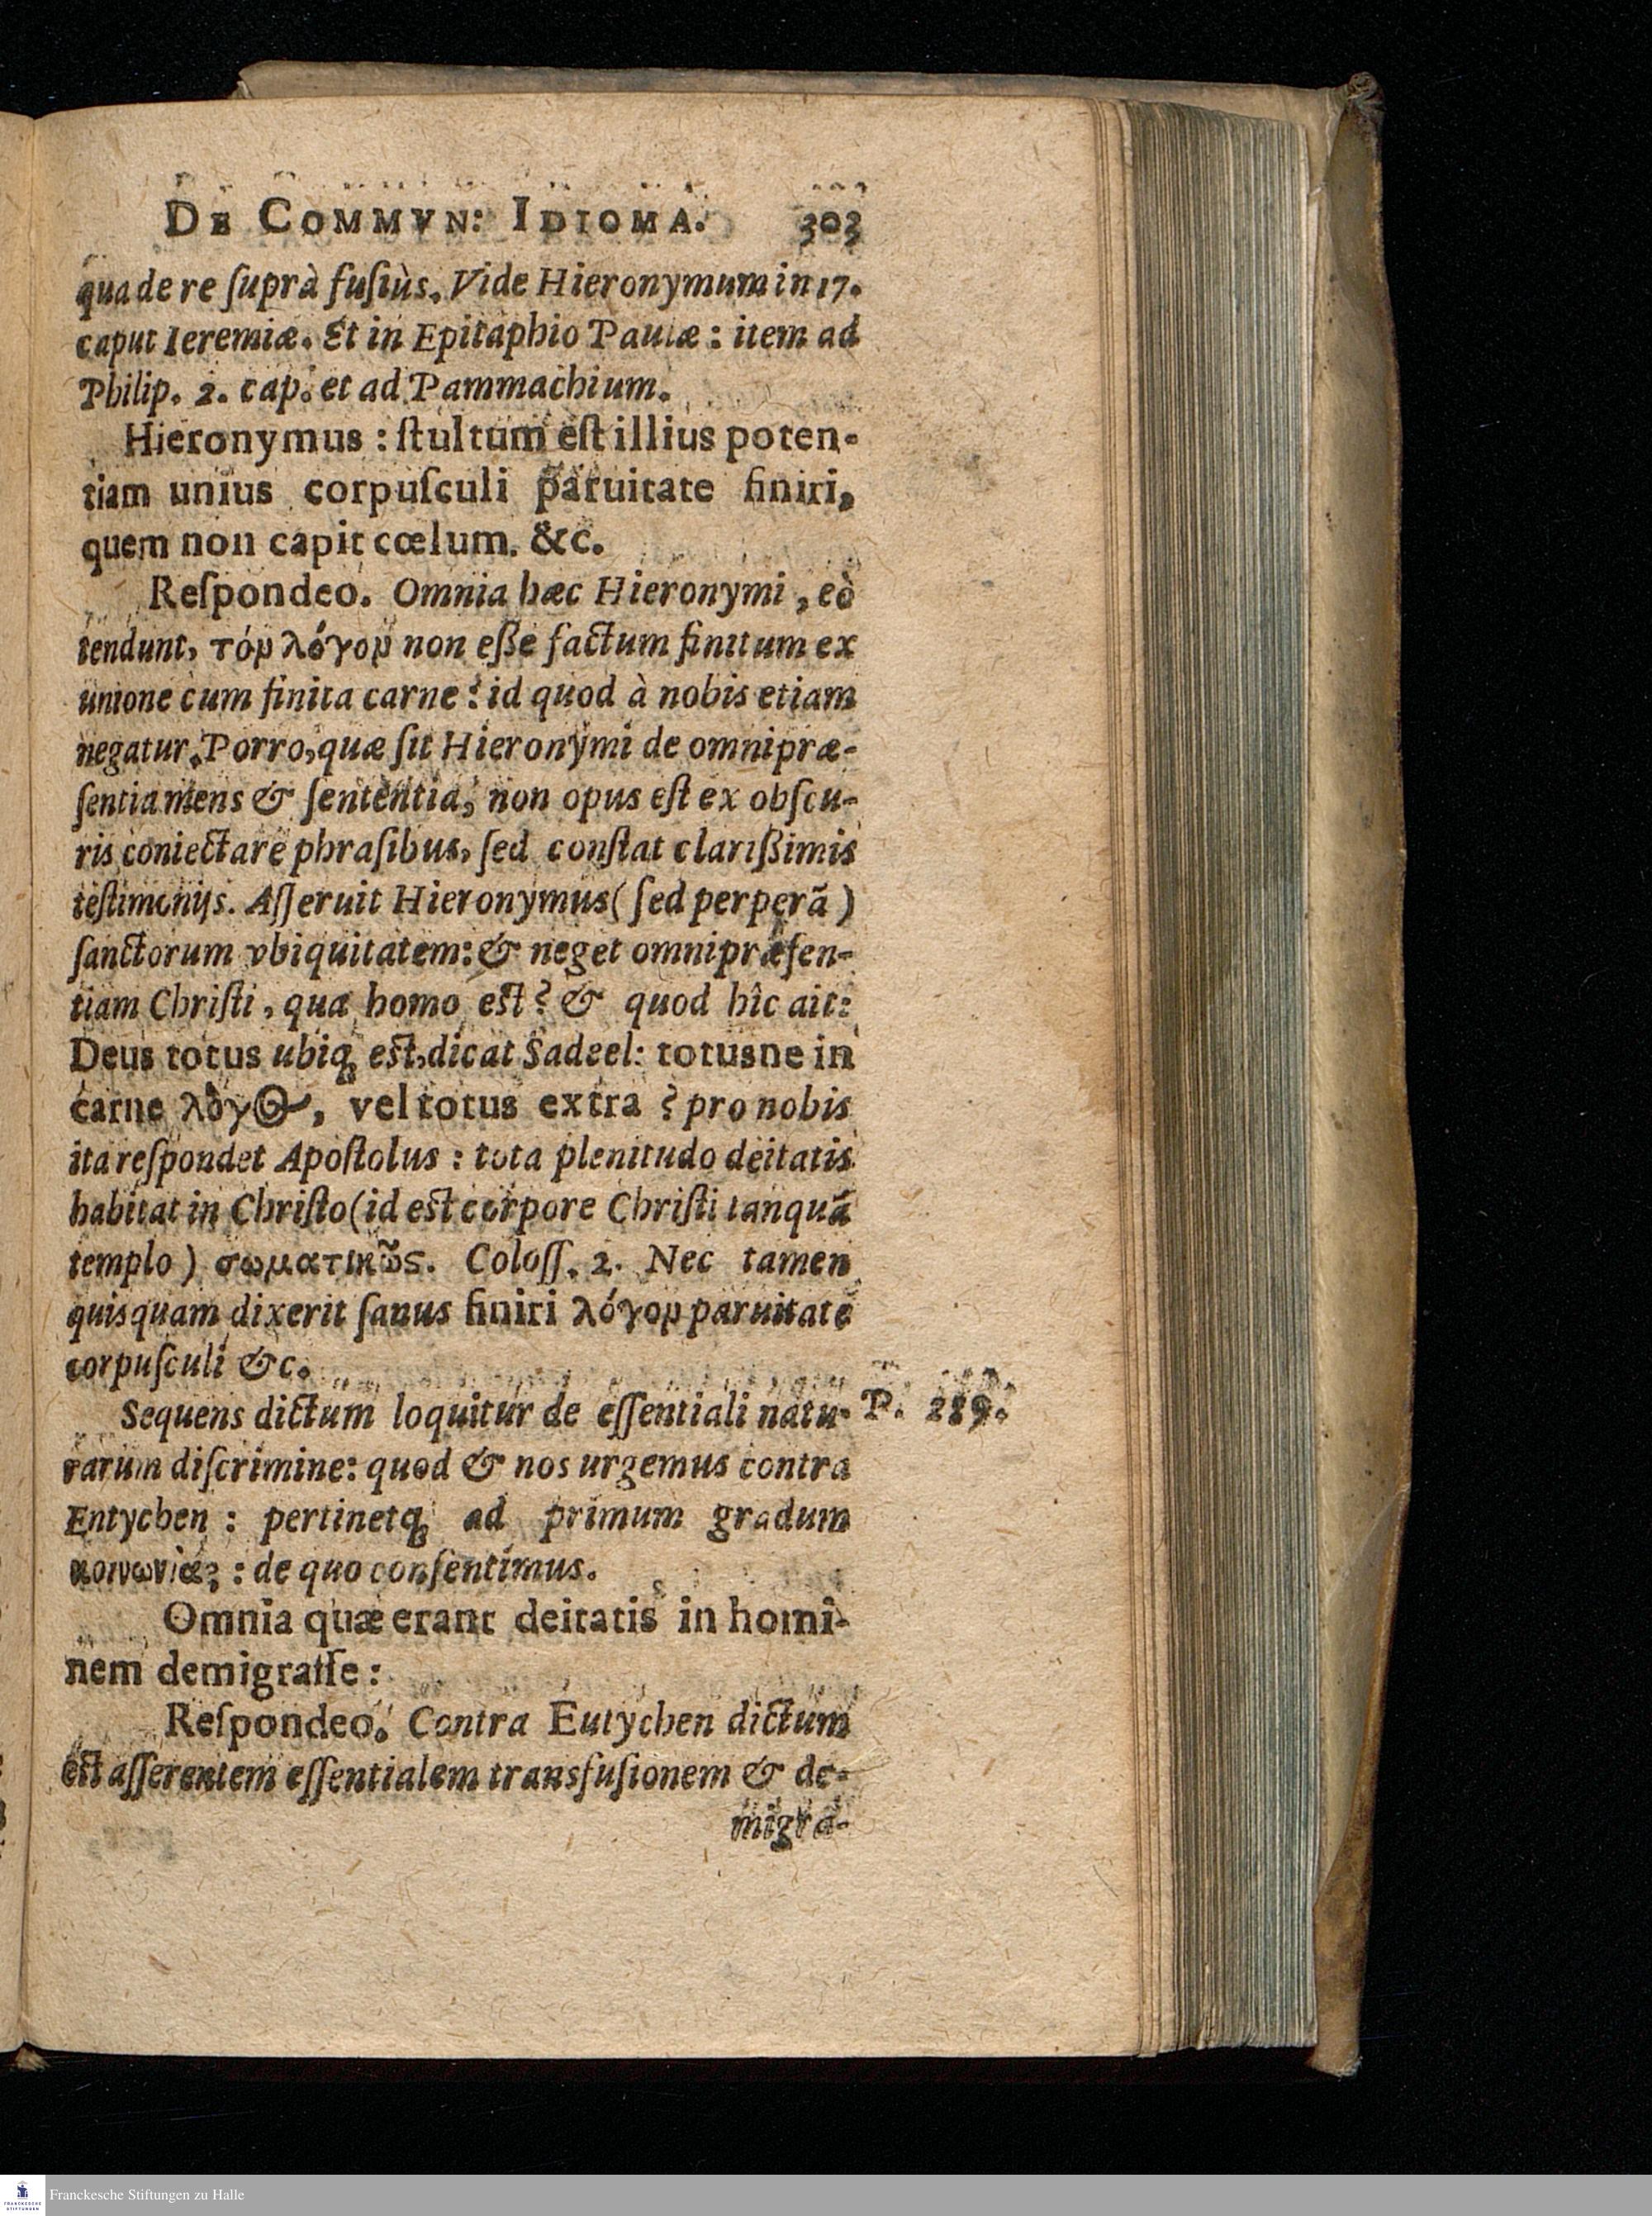 DE COMMVN: IDIOMA. 303
qua de re ſuprà fuſiùs. Vide Hieronymum in 17.
caput Ieremiæ. Et in Epitaphio Paulæ: item ad
Philip. 2. cap. et ad Pammachium.
Hieronymus: ſtultum eſt illius poten-
tiam unius corpuſculi paruitate finiri,
quem non capit cœlum. &c.
Reſpondeo. Omnia hæc Hieronymi, eò
tendunt, τὸν λόγον non eſſe factum finitum ex
unione cum finita carne: id quod à nobis etiam
negatur. Porro, quæ ſit Hieronymi de omnipræ-
ſentia mens & ſententia, non opus eſt ex obſcu-
ris coniectare phraſibus, ſed conſtat clariſſimis
teſtimonijs. Aſſeruit Hieronymus (ſed perperã)
ſanctorum vbiquitatem: & neget omnipræſen-
tiam Chriſti, qua homo eſt? & quod hîc ait:
Deus totus ubiq; eſt, dicat Sadeel: totusne in
carne λόγος, vel totus extra? pro nobis
ita reſpondet Apoſtolus: tota plenitudo deitatis
habitat in Chriſto (id eſt corpore Chriſti tanquã
templo) σωματικῶς. Coloſſ. 2. Nec tamen
quisquam dixerit ſanus finiri λόγον paruitate
corpuſculi &c.
Sequens dictum loquitur de eſſentiali natu- P. 289.
rarum diſcrimine: quod & nos urgemus contra
Entychen: pertinetq; ad primum gradum
κοινωνίας: de quo conſentimus.
Omnia quæ erant deitatis in homi-
nem demigraſſe:
Reſpondeo. Contra Eutychen dictum
eſt aſſerentem eſſentialem transfuſionem & de-
migra-
Franckesche Stiftungen zu Halle